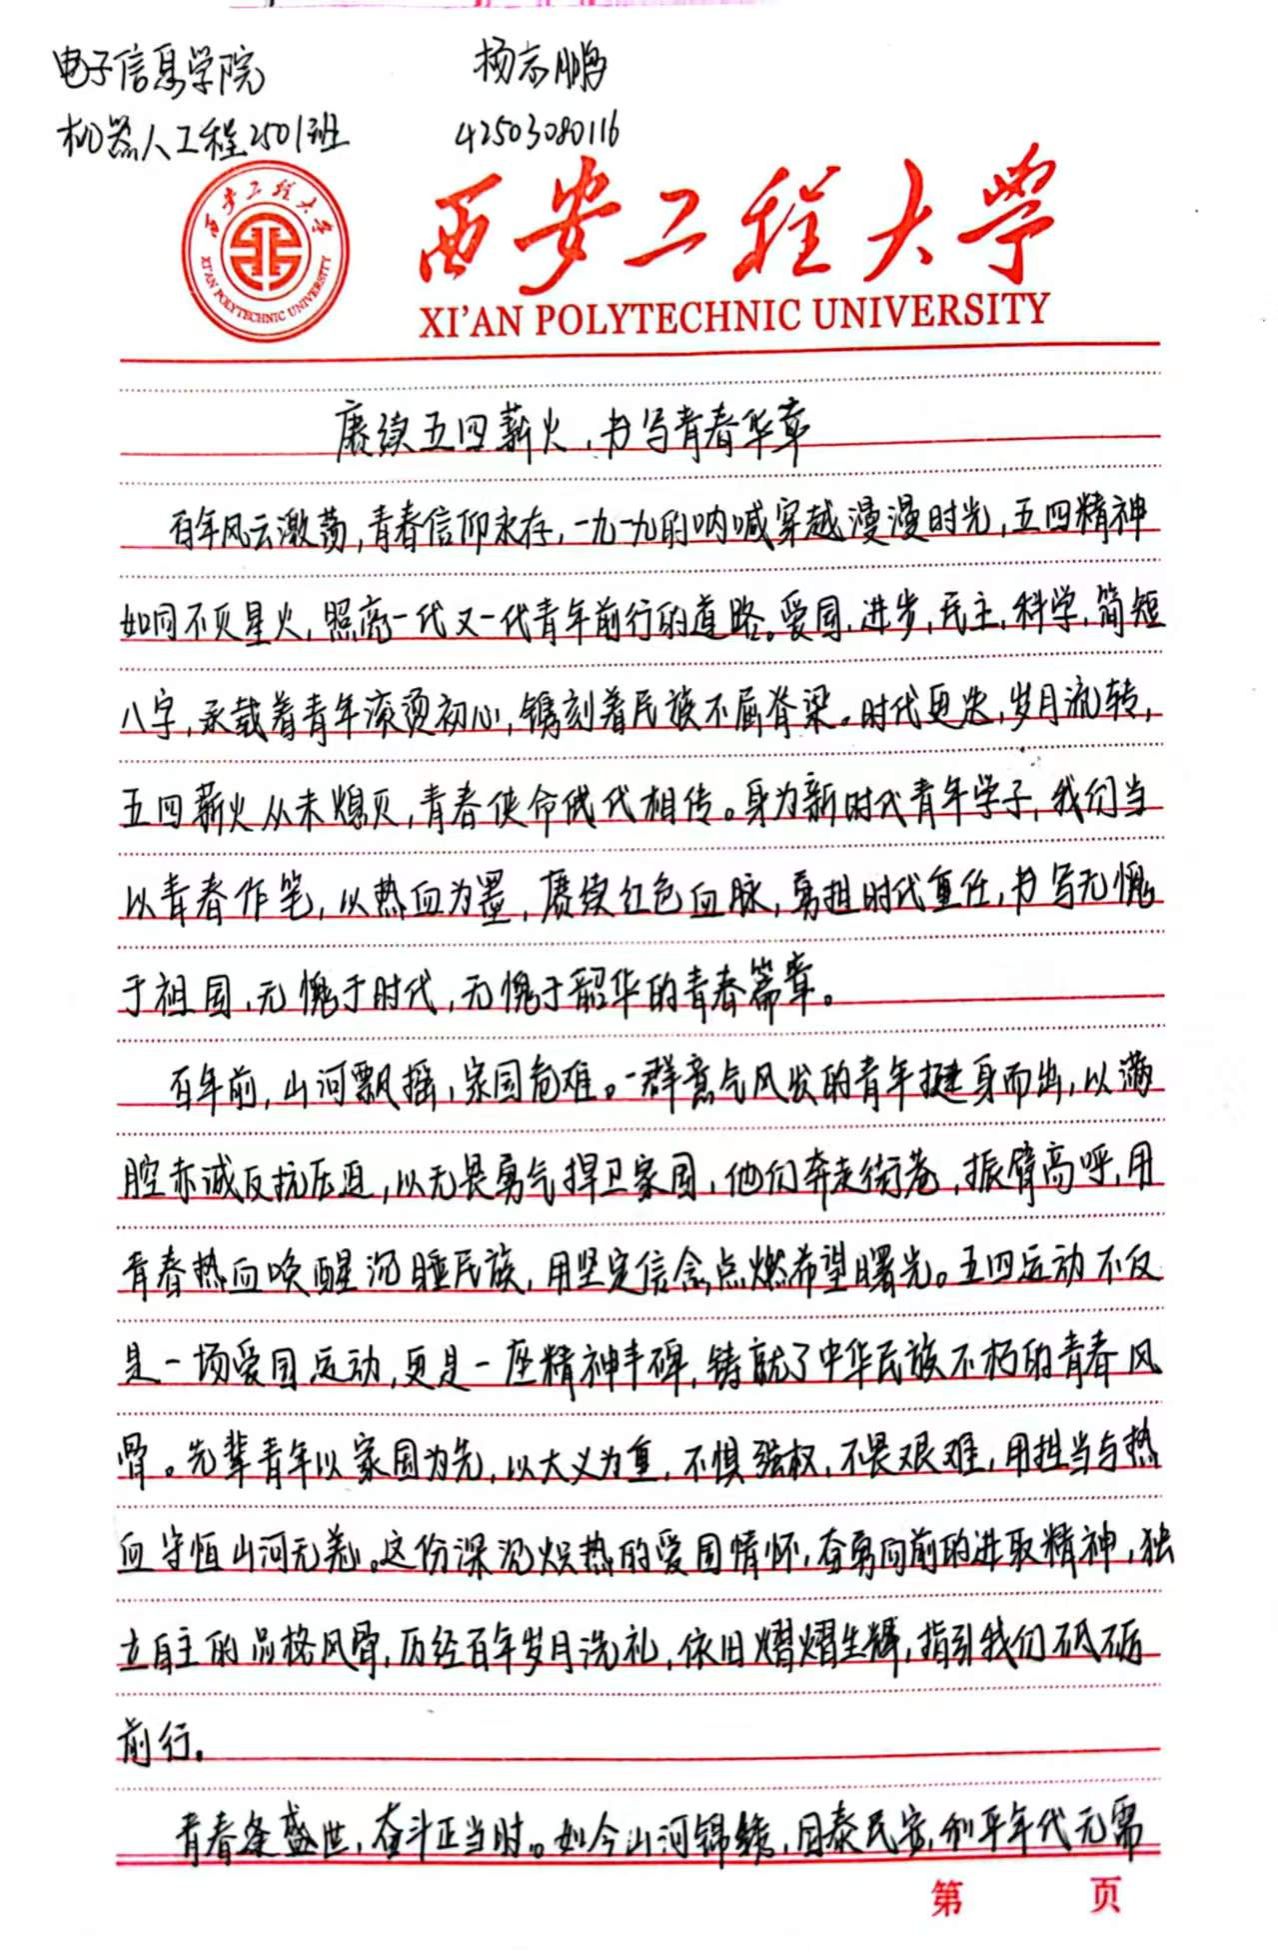 电子信息学院 杨志鹏
机器人工程2501班 42503080116
西安工程大学
XI'AN POLYTECHNIC UNIVERSITY
西安工程大学
XI'AN POLYTECHNIC UNIVERSITY
赓续五四薪火,书写青春华章
百年风云激荡,青春信仰永存,一九一九的呐喊穿越漫漫时光,五四精神
如同不灭星火,照亮一代又一代青年前行的道路。爱国,进步,民主,科学,简短
八字,承载着青年滚烫初心,镌刻着民族不屈脊梁。时代更迭,岁月流转,
五四薪火从未熄灭,青春使命代代相传。身为新时代青年学子,我们当
以青春作笔,以热血为墨,赓续红色血脉,勇担时代重任,书写无愧
于祖国,无愧于时代,无愧于韶华的青春篇章。
百年前,山河飘摇,家国危难。一群意气风发的青年挺身而出,以满
腔赤诚反抗压迫,以无畏勇气捍卫家国,他们奔走街巷,振臂高呼,用
青春热血唤醒沉睡民族,用坚定信念点燃希望曙光。五四运动不仅
是一场爱国运动,更是一座精神丰碑,铸就了中华民族不朽的青春风
骨。先辈青年以家国为先,以大义为重,不惧强权,不畏艰难,用担当与热
血守恒山河无恙。这份深沉炽热的爱国情怀,奋勇向前的进取精神,独
立自主的品格风骨,历经百年岁月洗礼,依旧熠熠生辉,指引我们砥砺
前行。
青春逢盛世,奋斗正当时。如今山河锦绣,国泰民安,和平年代无需
第 页